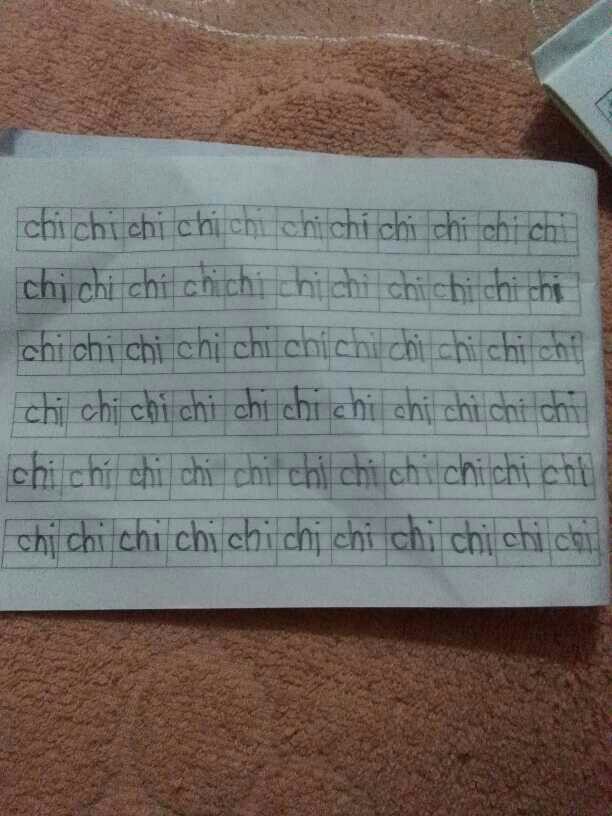 chi chi chi chi chi chi chi chi chi chi chi
chi chi chi chi chi chi chi chi chi chi chi
chi chi chi chi chi chi chi chi chi chi chi
chi chi chi chi chi chi chi chi chi chi chi
chi chi chi chi chi chi chi chi chi chi chi
chi chi chi chi chi chi chi chi chi chi chi